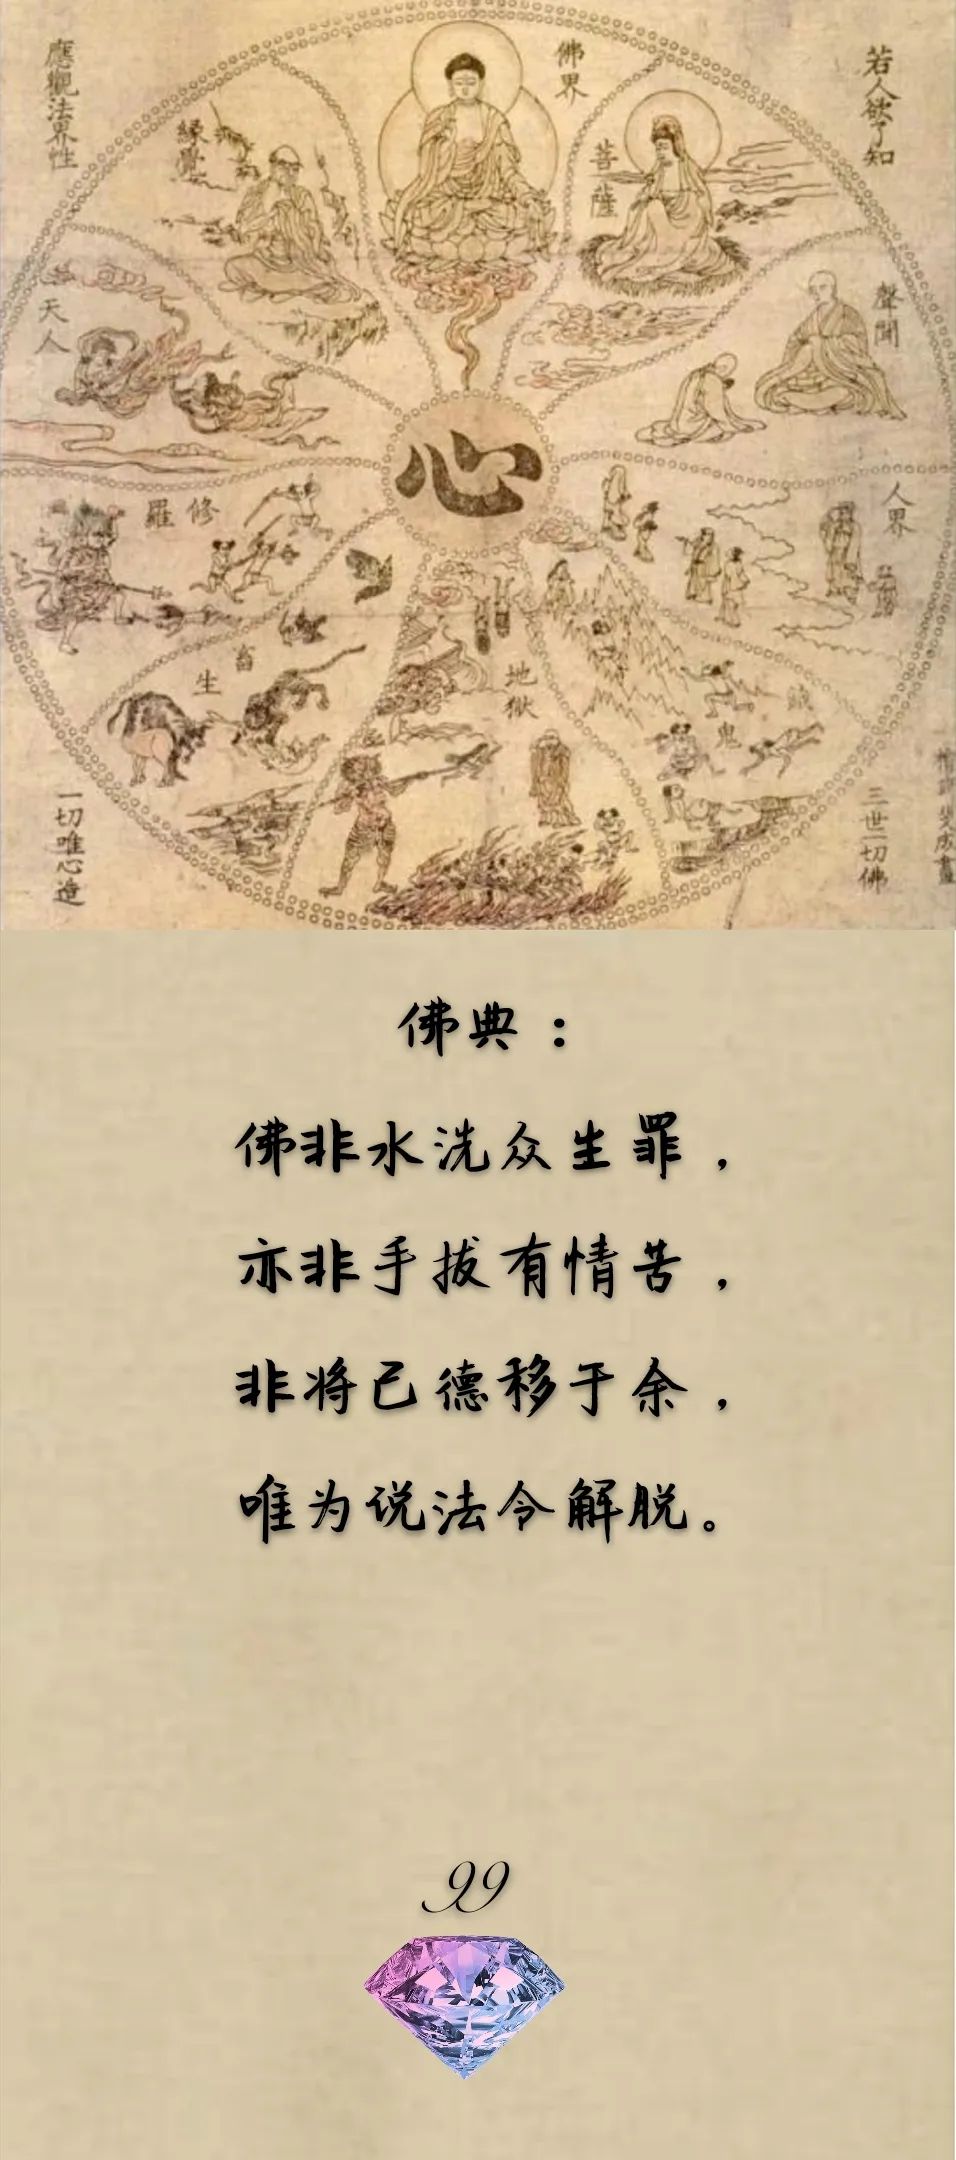 若人欲了知
三世一切佛
應觀法界性
一切唯心造
佛界
菩薩
緣覺
聲聞
天人
人界
修羅
畜生
地獄
鬼
心
佛典：
佛非水洗众生罪，
亦非手拔有情苦，
非将己德移于余，
唯为说法令解脱。
99